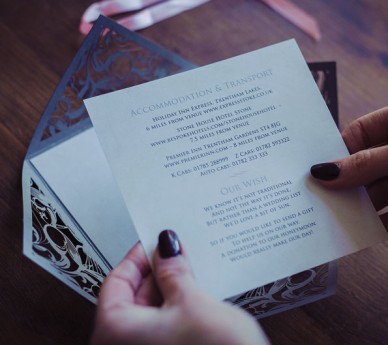 Accommodation & Transport
Holiday Inn Express, Trentham Lakes
6 miles from venue www.expressstoke.co.uk
Stone House Hotel, Stonehouse
www.bespokehotels.com/stonehousehotel
7.5 miles from venue
Premier Inn Trentham Gardens ST4 8JG
www.premierinn.com - 8 miles from venue
K Cabs: 01785 288999 Z Cars: 01782 593333
Auto Cab: 01782 333 333
Our Wish
We know it's not traditional
and not the way it's done,
but rather than a wedding list
we'd love a bit of sun.
So if you would like to send a gift
to help us on our way,
a donation to our honeymoon
would really make our day!